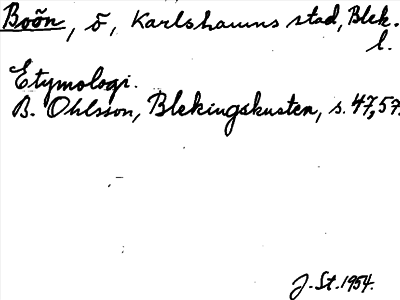 Boön, ö, Karlshamns stad, Blek.
l.
Etymologi.
B. Ohlsson, Blekingskusten, s. 47, 57.
J. St. 1954.